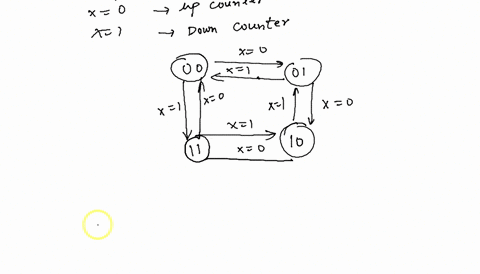 x = 0 → up counter
x = 1 → Down counter
x = 0
00 x = 1 01
x = 1 x = 0 x = 1 x = 0
x = 1
11 x = 0 10